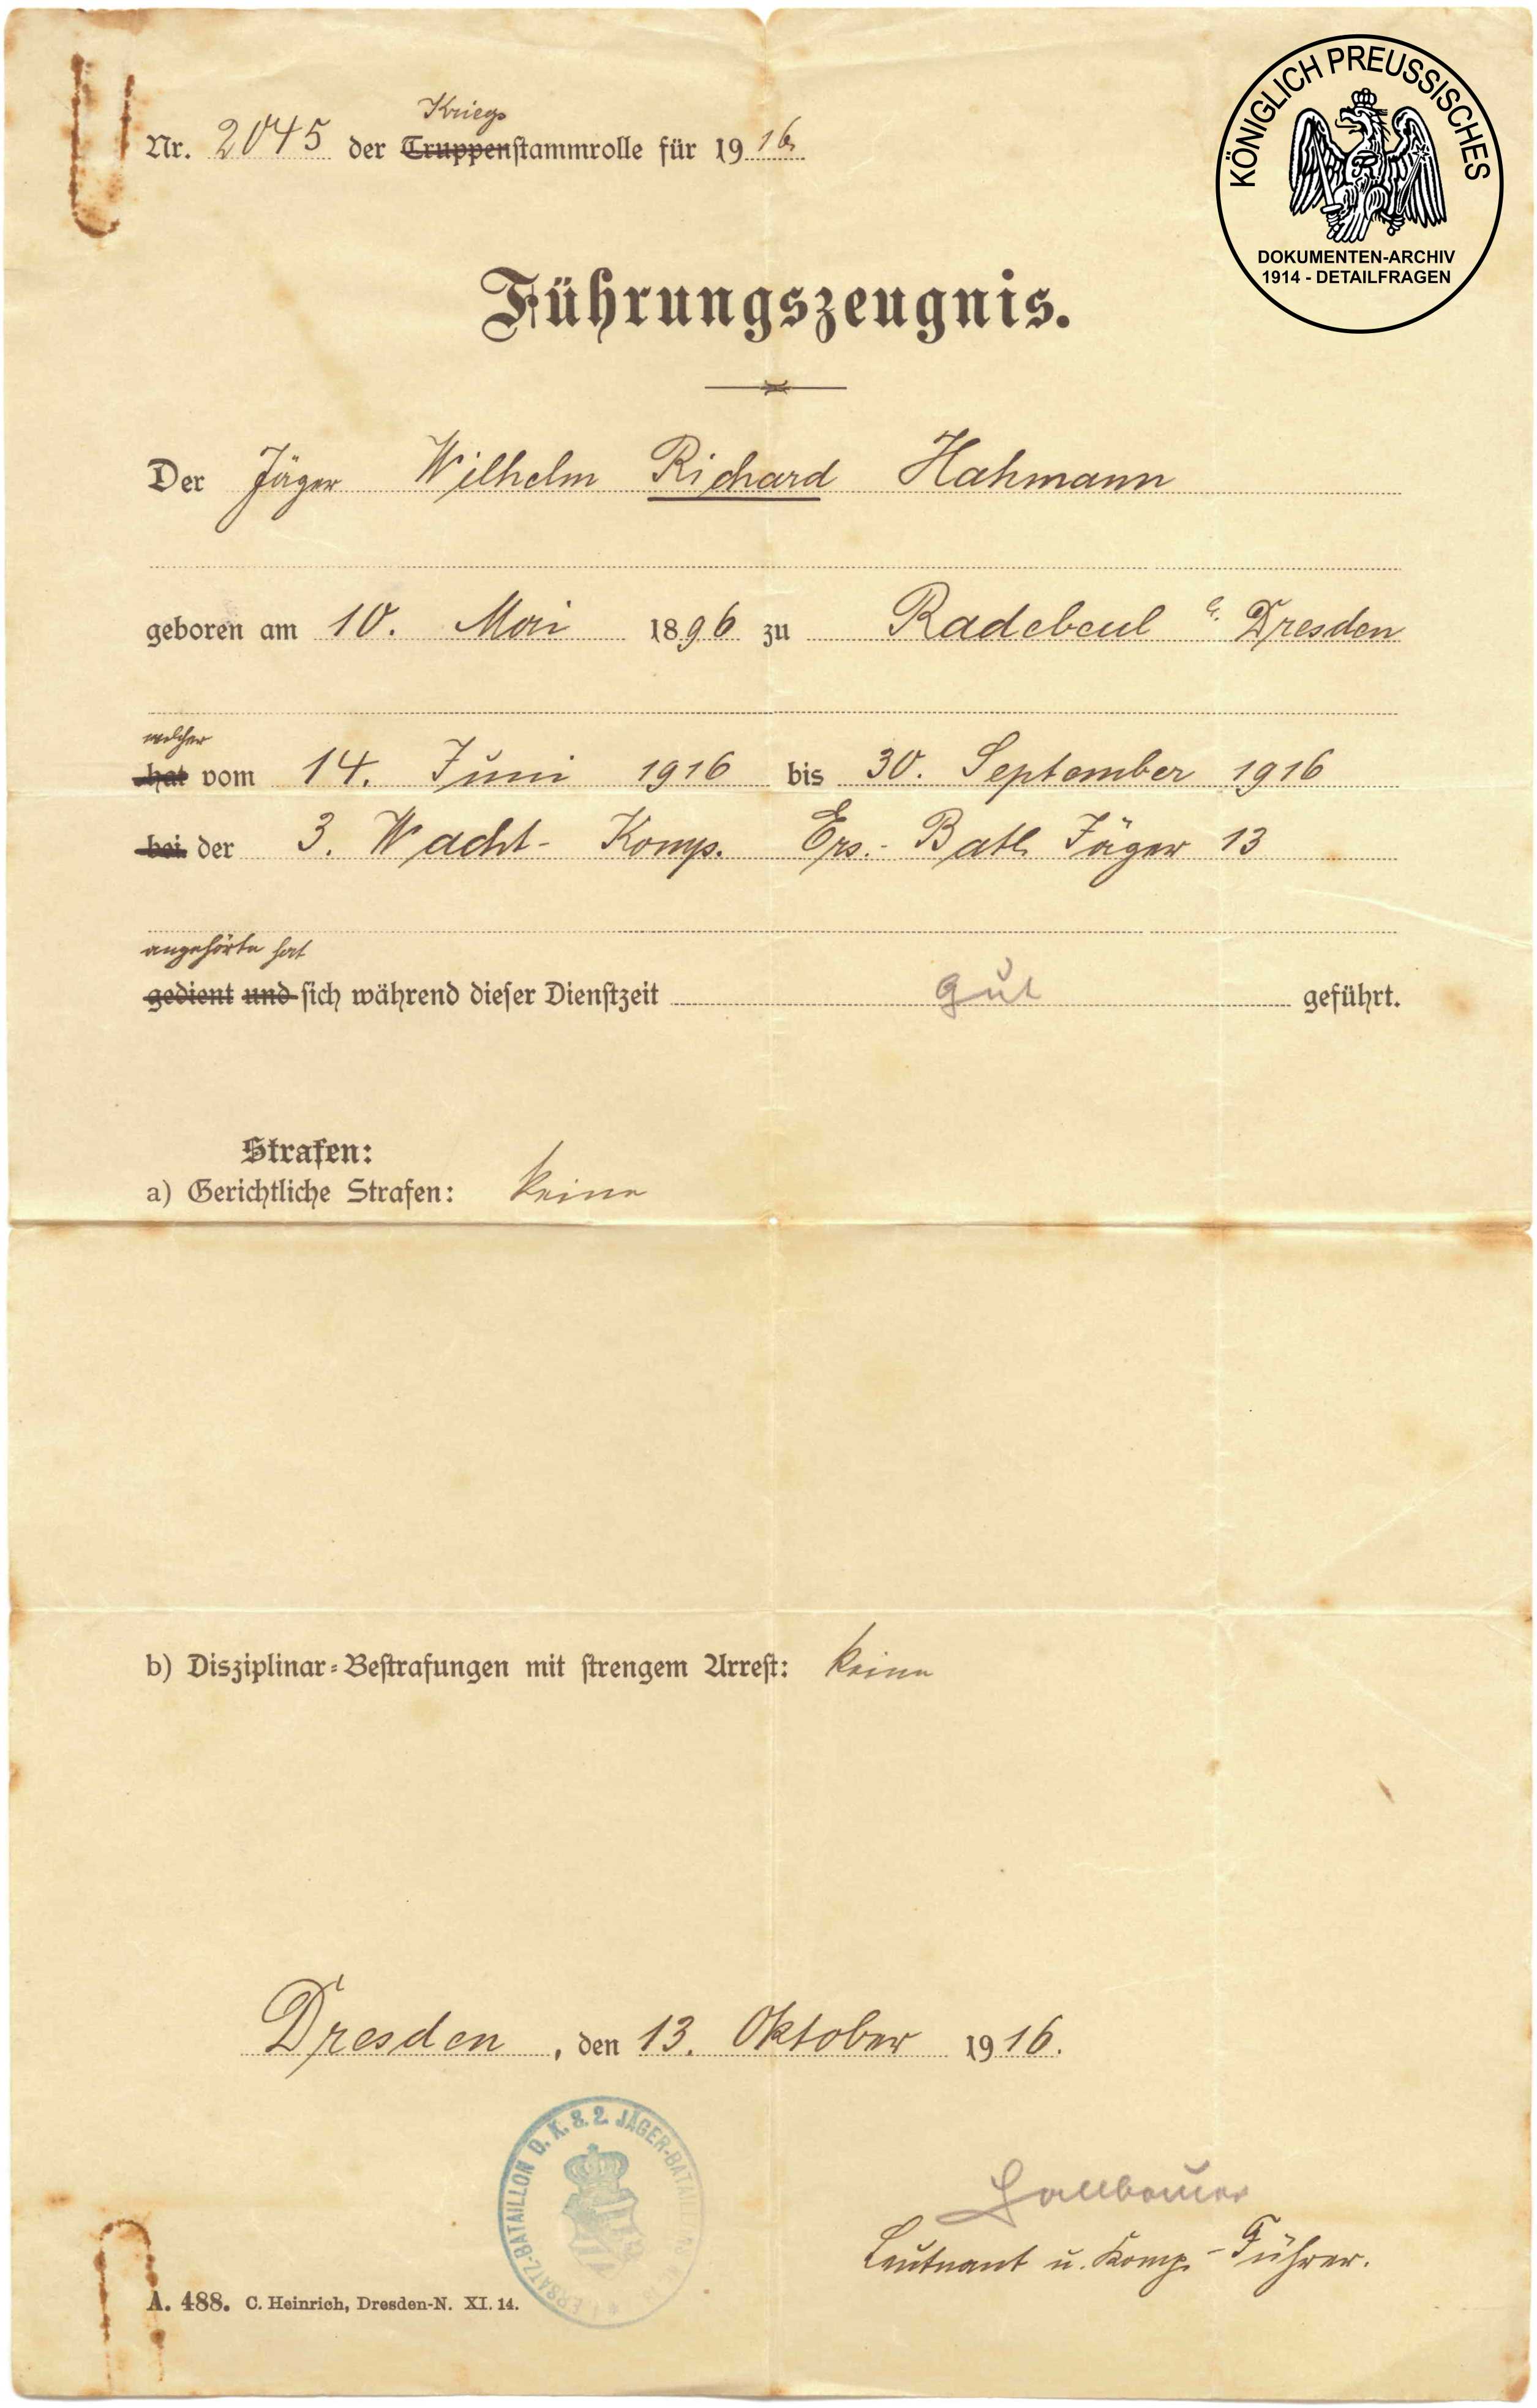 KÖNIGLICH PREUSSISCHES
DOKUMENTEN-ARCHIV
1914 - DETAILFRAGEN
Kriegs
Nr. 2045 der Truppenstammrolle für 1916
Führungszeugnis.
Der Jäger Wilhelm Richard Hahmann
geboren am 10. Mai 1896 zu Radebeul b. Dresden
welcher
hat vom 14. Juni 1916 bis 30. September 1916
bei der 3. Wacht-Komp. Ers.-Batl. Jäger 13
angehörte hat
gedient und sich während dieser Dienstzeit gut geführt.
Strafen:
a) Gerichtliche Strafen: keine
b) Disziplinar-Bestrafungen mit strengem Arrest: keine
Dresden, den 13. Oktober 1916.
ERSATZ-BATAILLON D. K. S. 2. JÄGER-BATAILLONS
Hallbauer
Leutnant u. Komp.-Führer.
A. 488. C. Heinrich, Dresden-N. XI. 14.